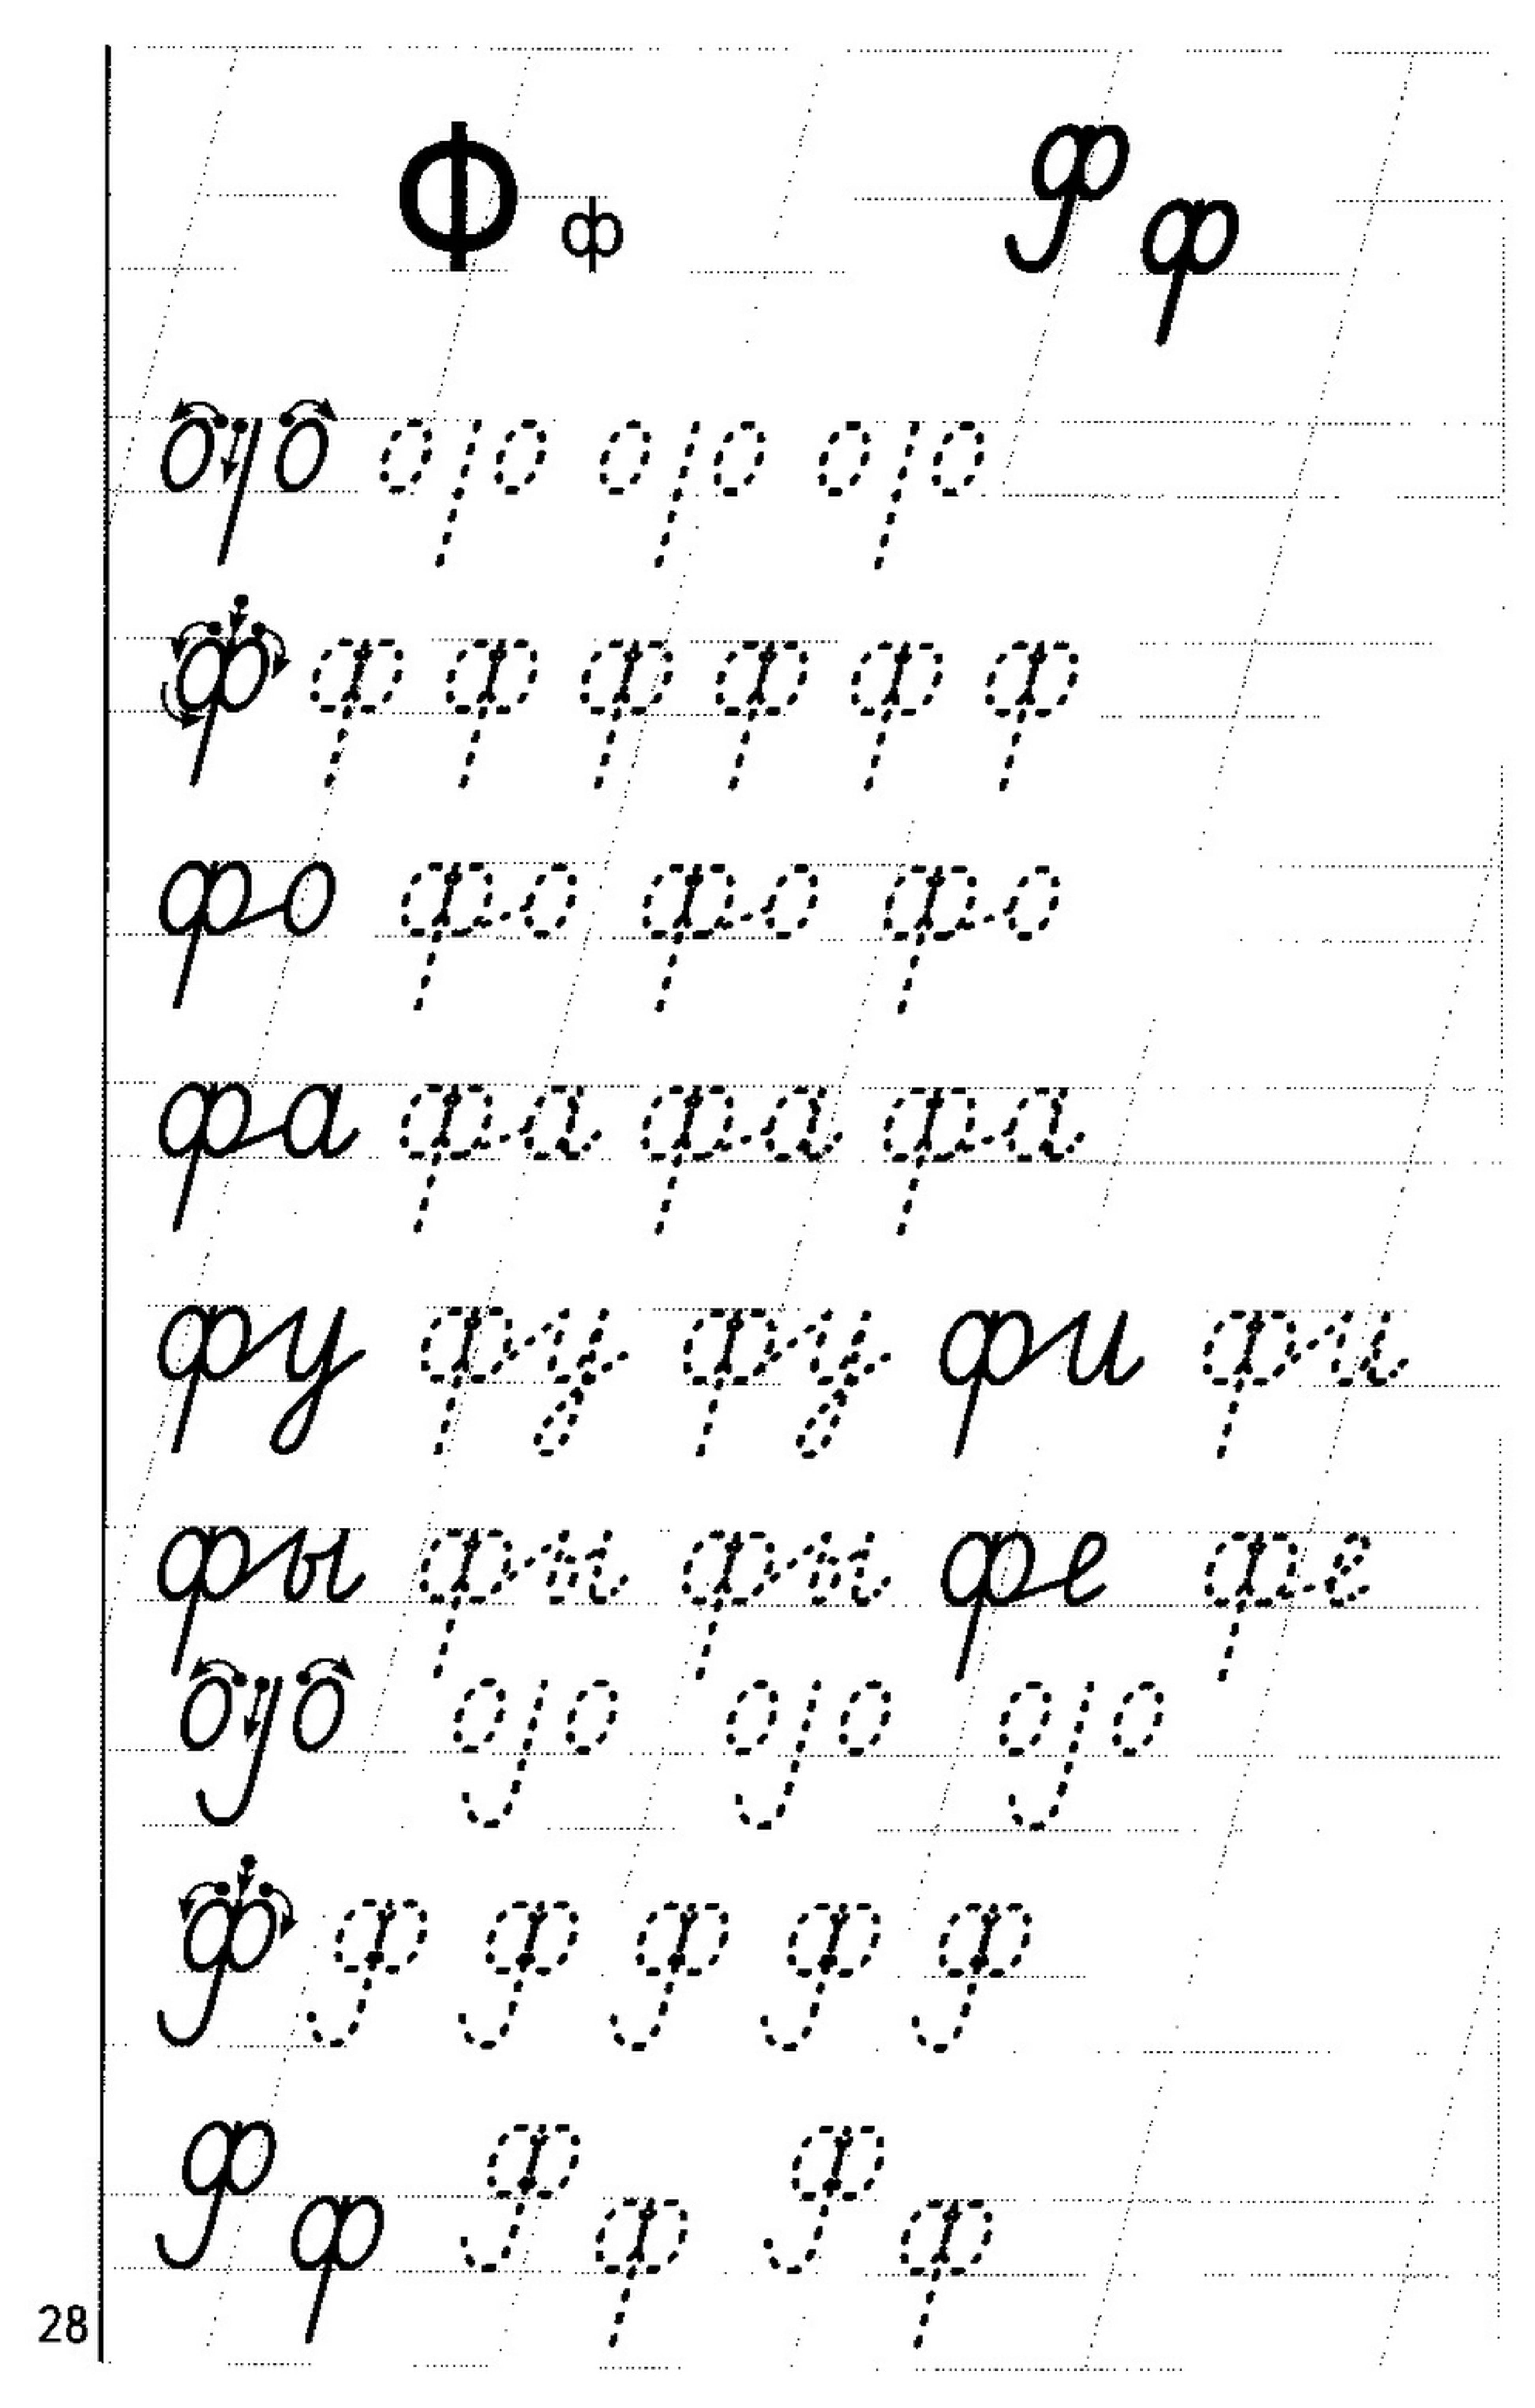 Ф ф Ф ф
о|о о|о о|о о|о
ф ф ф ф ф ф ф
фо фо фо фо
фа фа фа фа
фу фу фу фи фи
фы фы фы фе фе
оȷо оȷо оȷо оȷо
Ф Ф Ф Ф Ф Ф
Ф ф Ф ф Ф ф
28